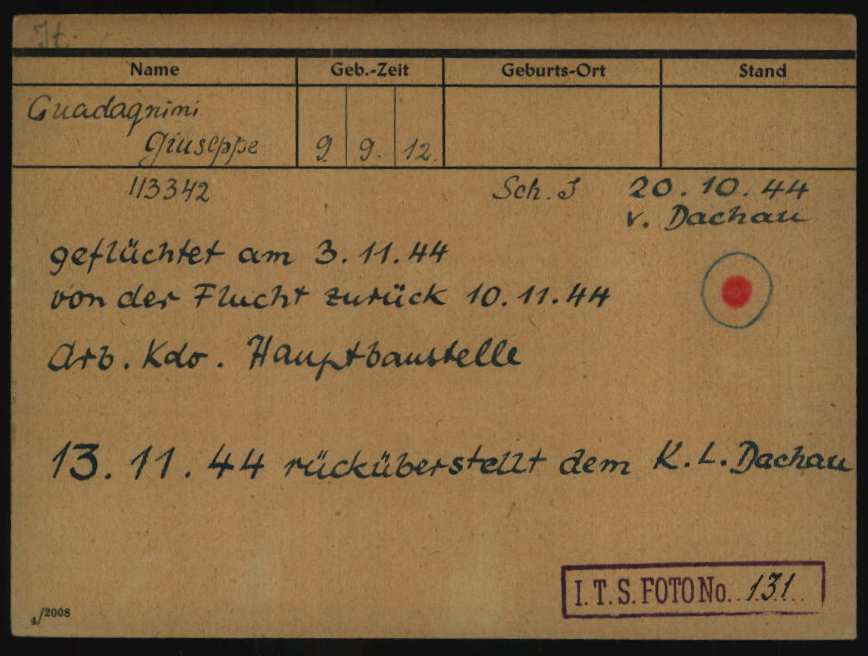 It.
Name Geb.-Zeit Geburts-Ort Stand
Guadagnini
Giuseppe 9. 9. 12.
113342 Sch. I 20.10.44
v. Dachau
geflüchtet am 3.11.44
von der Flucht zurück 10.11.44
Arb. Kdo. Hauptbaustelle
13.11.44 rücküberstellt dem K.L. Dachau
I.T.S. FOTO No. 131
4/2008